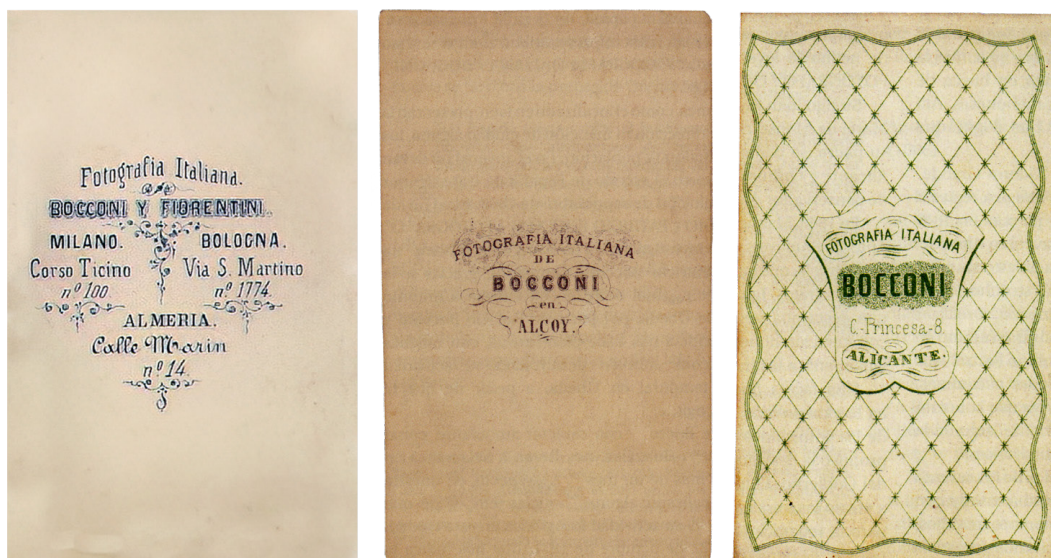 Fotografia Italiana.
BOCCONI Y FIORENTINI.
MILANO. BOLOGNA.
Corso Ticino Via S. Martino
nº 100. nº 1774.
ALMERIA.
Calle Marin
nº 14.
FOTOGRAFIA ITALIANA
DE
BOCCONI
en
ALCOY.
FOTOGRAFIA ITALIANA
BOCCONI
C.-Princesa-8.
ALICANTE.